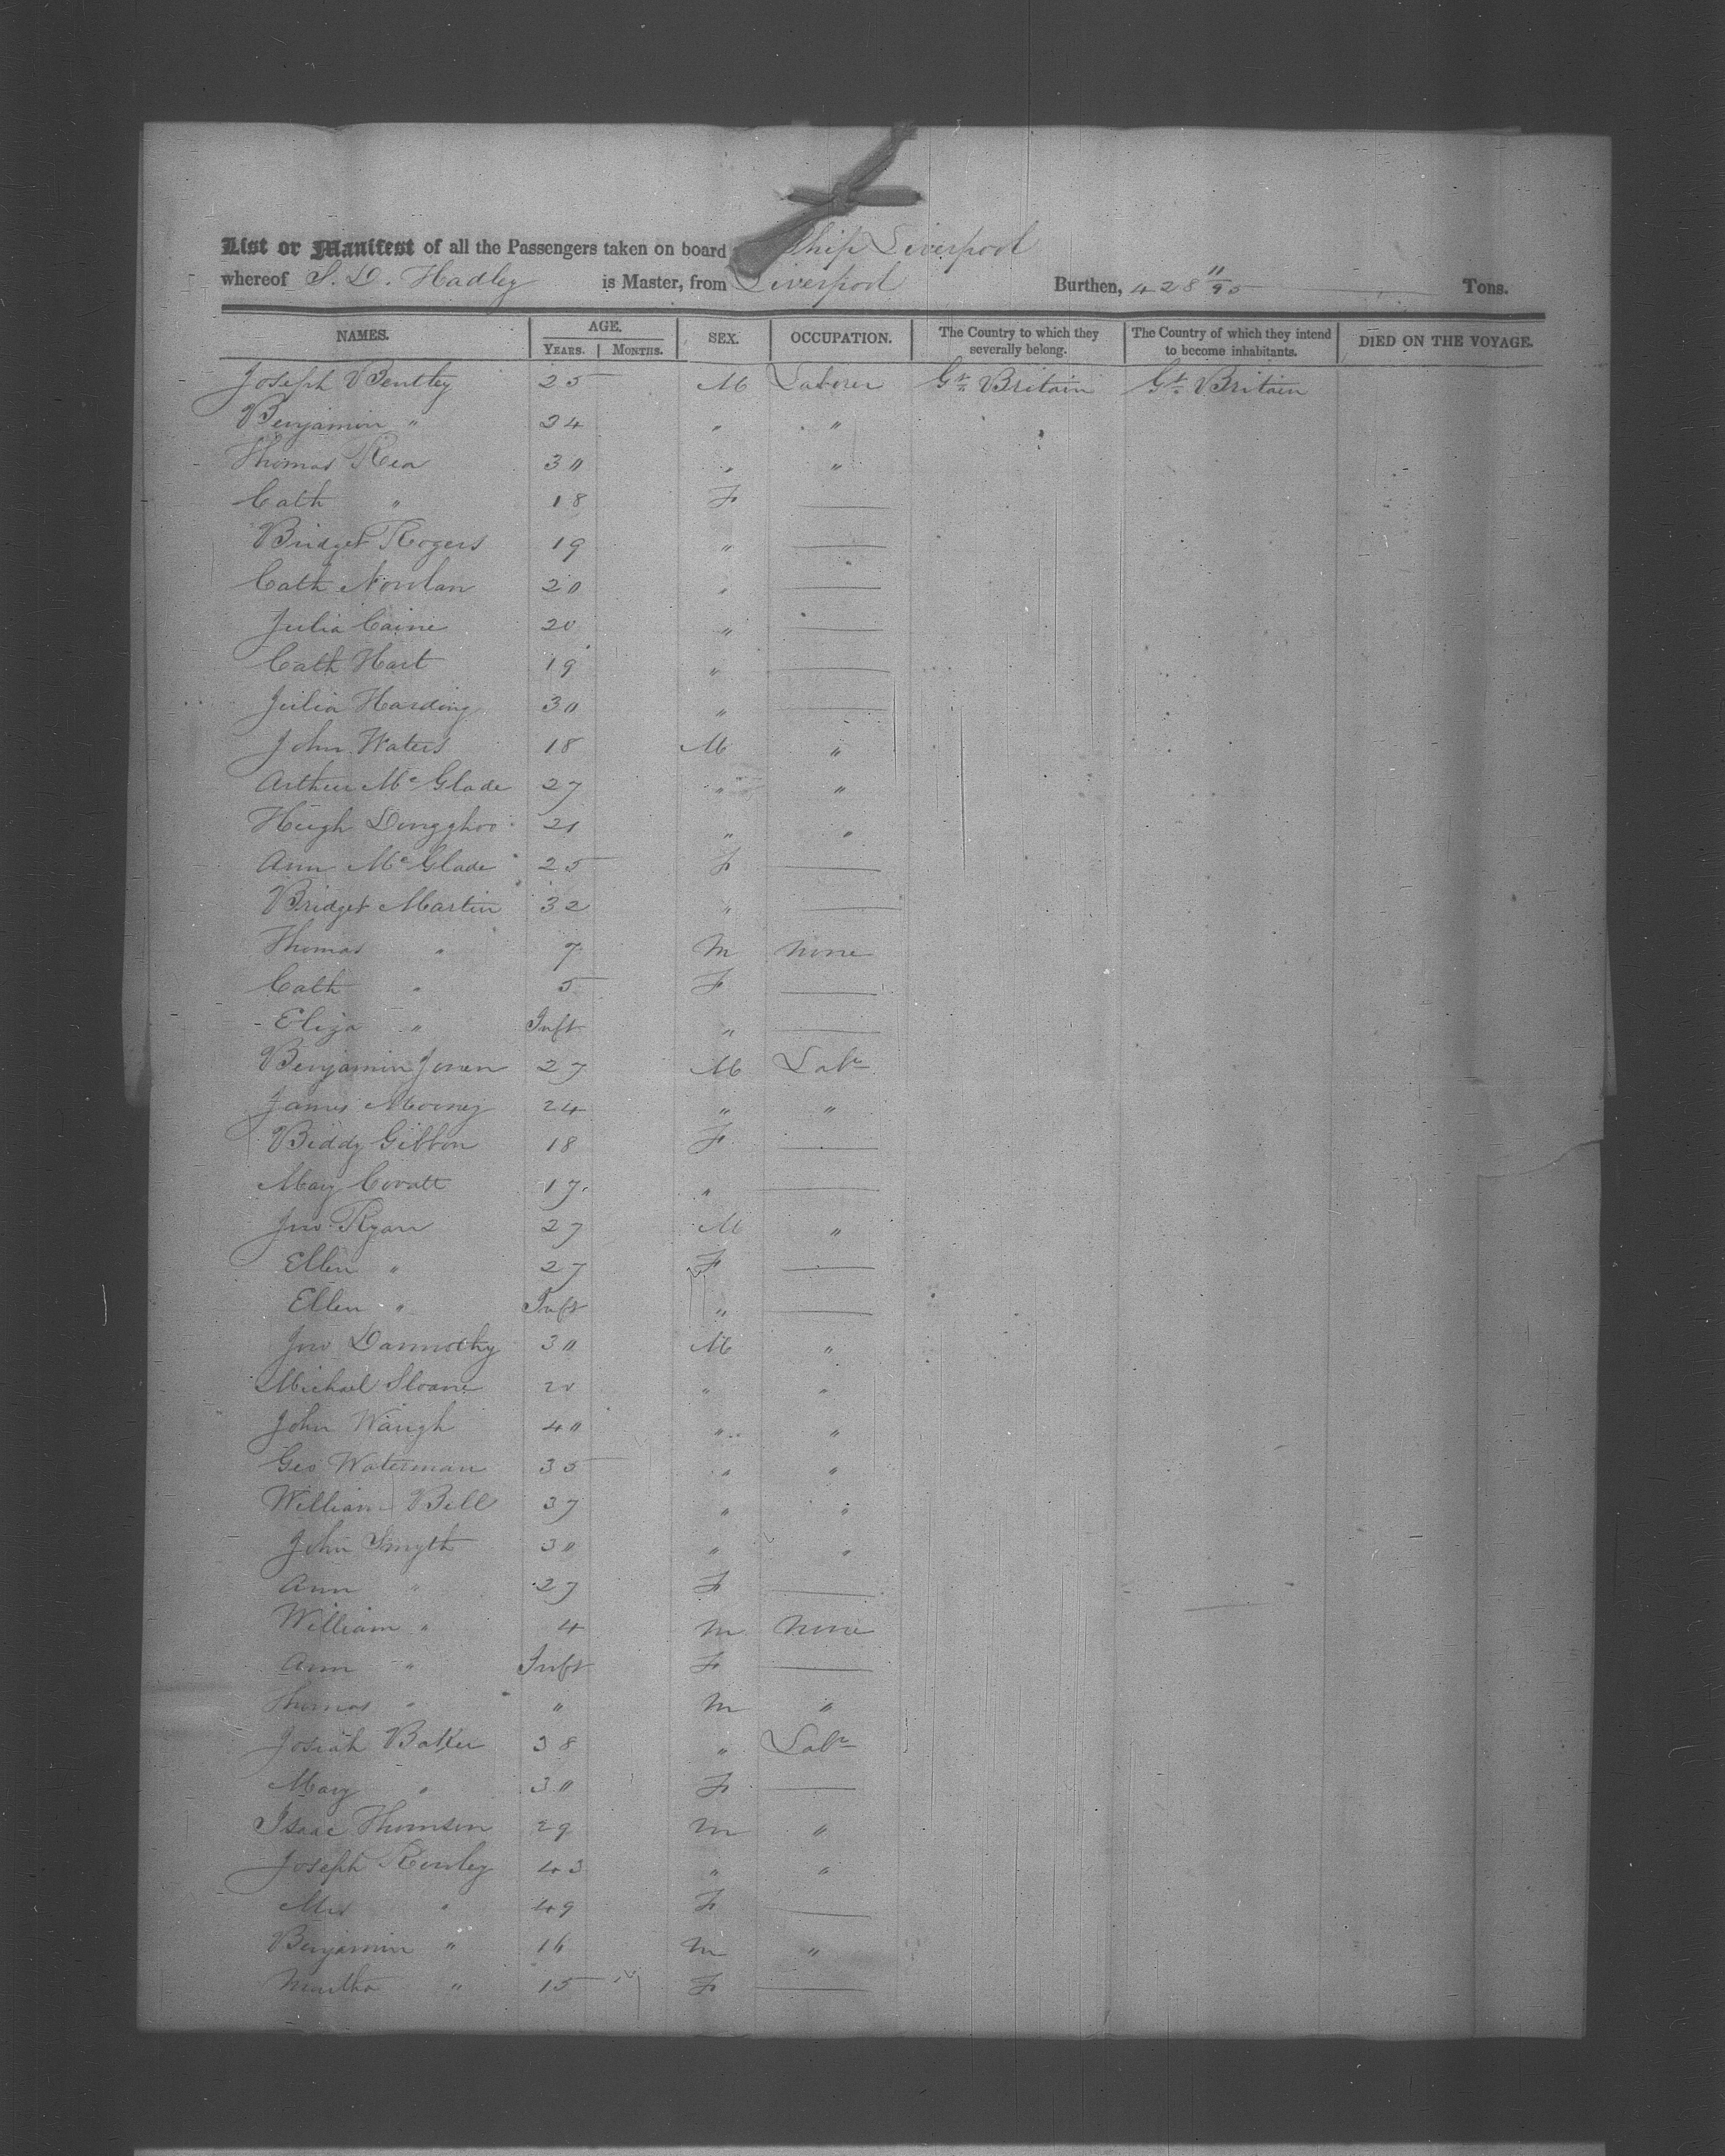 List or Manifest of all the Passengers taken on board Ship Liverpool
whereof S. D. Hadley is Master, from Liverpool Burthen, 428 11/95 Tons.
NAMES. AGE. SEX. OCCUPATION. The Country to which they severally belong. The Country of which they intend to become inhabitants. DIED ON THE VOYAGE.
YEARS. MONTHS.
Joseph Bentley 25 M Laborer Gt. Britain Gt. Britain
Benjamin " 24 " "
Thomas Rea 30 " "
Cath " 18 F
Bridget Rogers 19 "
Cath Nowlan 20 "
Julia Caine 20 "
Cath Hart 19 "
Julia Harding 30 "
John Waters 18 M "
Arthur McGlade 27 " "
Hugh 21 " "
Ann McGlade 25 F
Bridget Martin 32 "
Thomas " 7 M none
Cath " 5 F
Eliza " Inft "
Benjamin Jones 27 M Labr
James Mooney 24 " "
Biddy Gibbon 18 F
Mary 17 "
Jno Ryan 27 M "
Ellen " 27 F
Ellen " Inft "
Jno 30 M "
Michael Sloane 20 " "
John Waugh 40 " "
Geo Waterman 35 " "
William Bell 37 " "
John Smyth 30 " "
Ann " 27 F
William " 4 M none
Ann " Inft F
Thomas " " M "
Josiah Baker 38 " Labr
Mary " 30 F
Isaac Thomson 29 M "
Joseph 43 " "
Mrs " 49 F
Benjamin " 16 M "
Martha " 15 F